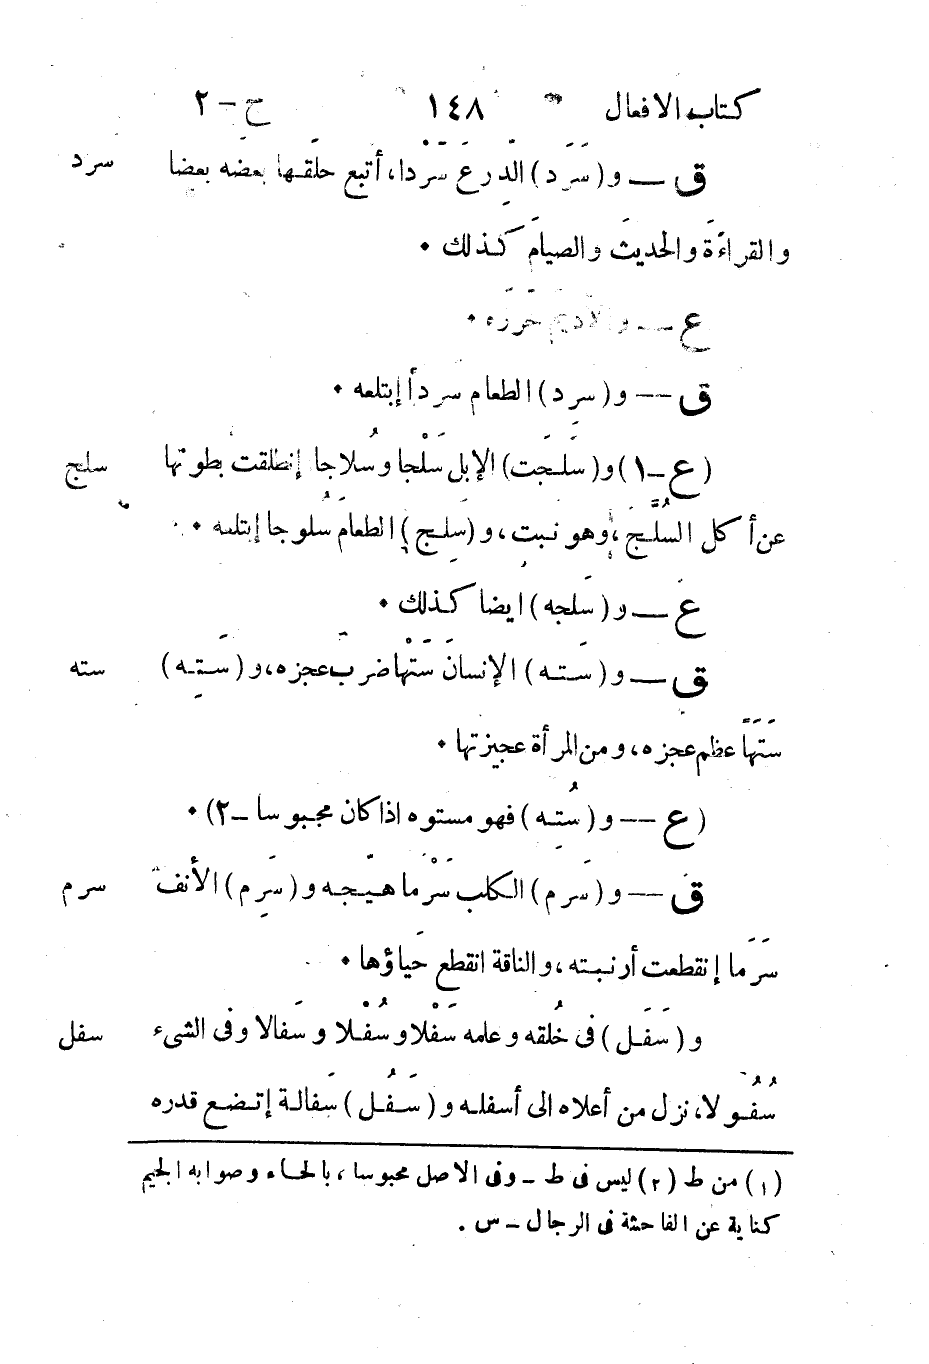 كتاب الافعال ١٤٨ ج – ٢
ق — و (سَرَد) الدِرعَ سَرْدا، أتبع حلَقها بعضَه بعضا سرد
والقراءَةَ والحديثَ والصيامَ كذلك •
ع — والأديمَ خَرَزَه •
ق — و (سرِد) الطعام سَرَدأ إبتلعه •
(ع – ١) و (سَلَجت) الإبل سَلْجا وسُلاجا إنطلقت بطونها سلج
عن أكل السُلَّج، وهو نبت، و (سلِج) الطعامَ سُلوجا إبتلعه •
ع — و (سَلجه) ايضا كذلك •
ق — و (سَته) الإنسانَ سَتْها ضربَ عجزه، و (سَتِه) سته
سَتَهًا عظم عجزه، ومن المرأة عجيزتها •
(ع — و (سُتِه) فهو مستوه اذا كان مجبوسا – ٢) •
ق — و (سَرم) الكلب سَرْما هيّجه و (سَرِم) الأنف سرم
سَرَما إنقطعت أرنبته، والناقة انقطع حَياؤها •
و (سَفَل) فى خُلقه وعلمه سَفْلا وسُفْلا وسَفالا وفى الشىء سفل
سُفُولا، نزل من أعلاه الى أسفله و (سَفُل) سَفالة إتضع قدره
(١) من ط (٢) ليس فى ط – وفى الاصل محبوسا، بالحاء وصوابه الجيم
كناية عن الفاحشة فى الرجال – س.